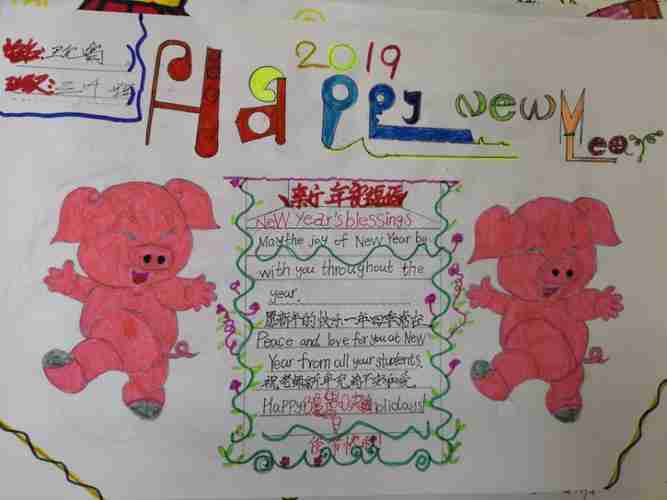 2019
Happy New Year
新年祝福语
New Year's blessings
May the joy of New Year be
with you throughout the
year.
愿新年的快乐一年四季常在
Peace and love for you at New
Year from all your students.
祝老师新年充满平安和爱
Happy holidays!